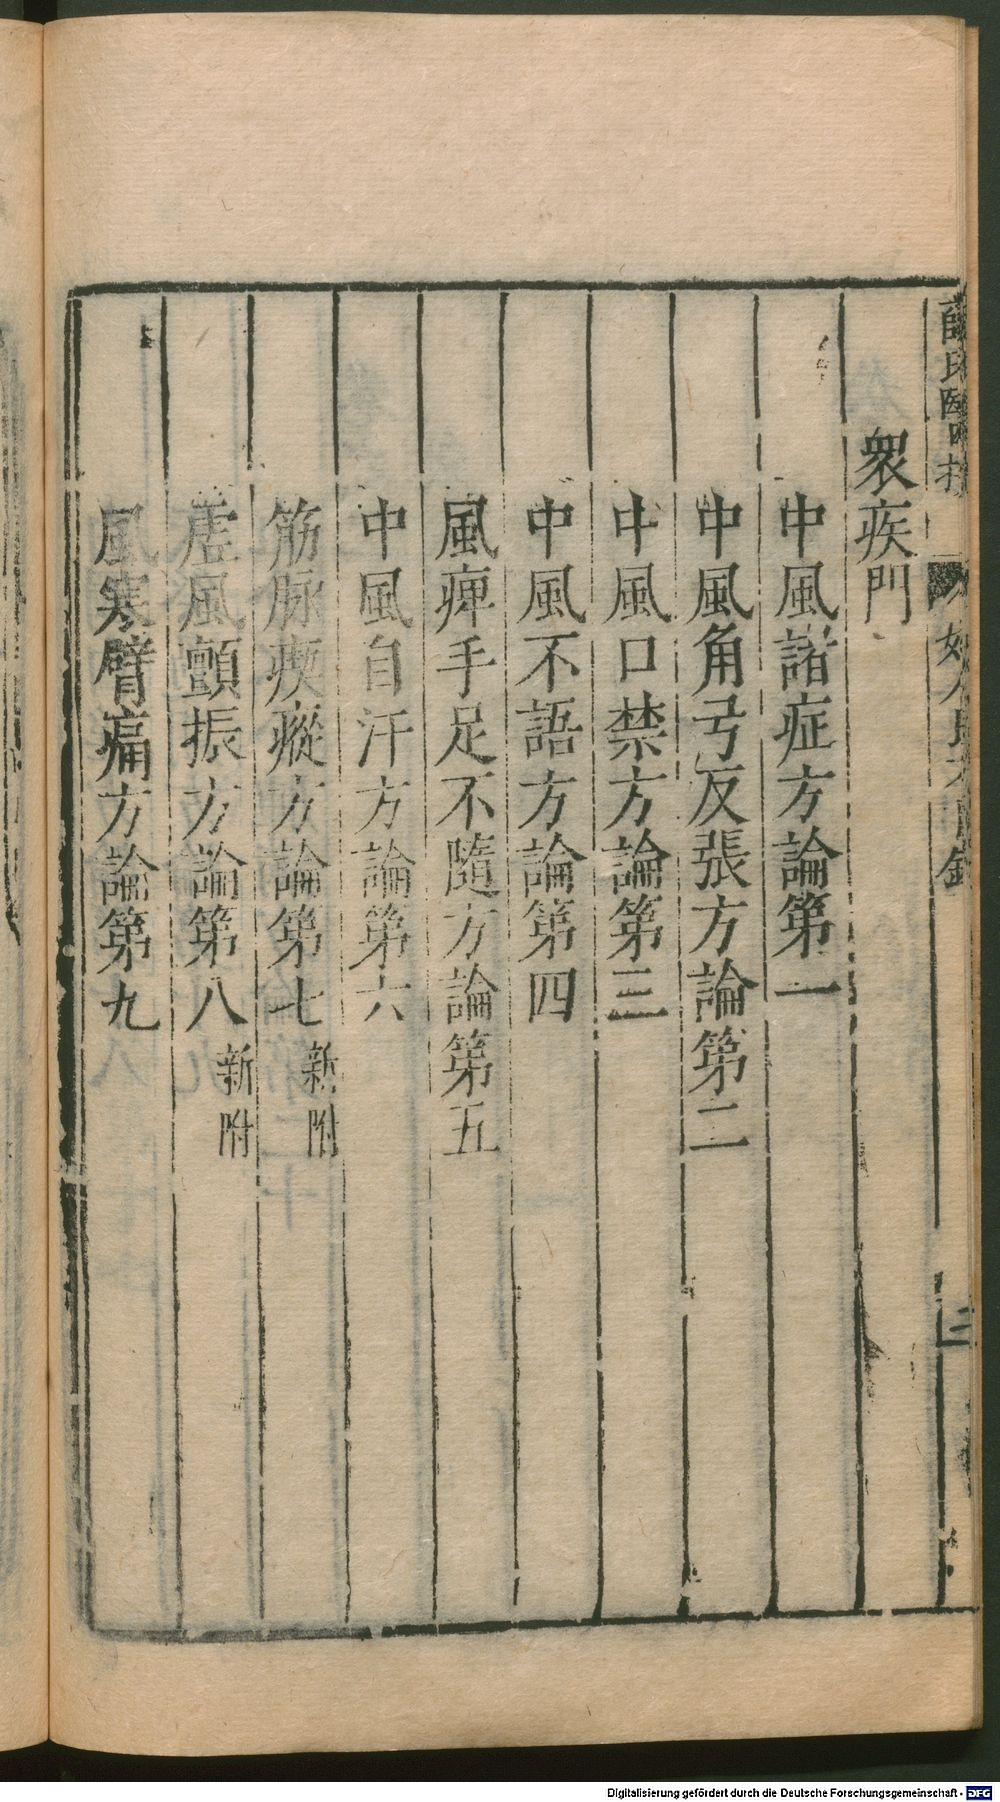 薛氏醫按
婦人良方目錄
三
衆疾門
中風諸症方論第一
中風角弓反張方論第二
中風口禁方論第三
中風不語方論第四
風痺手足不隨方論第五
中風自汗方論第六
筋脉瘈瘲方論第七 新附
虗風顫振方論第八 新附
風寒臂痛方論第九
Digitalisierung gefördert durch die Deutsche Forschungsgemeinschaft - DFG